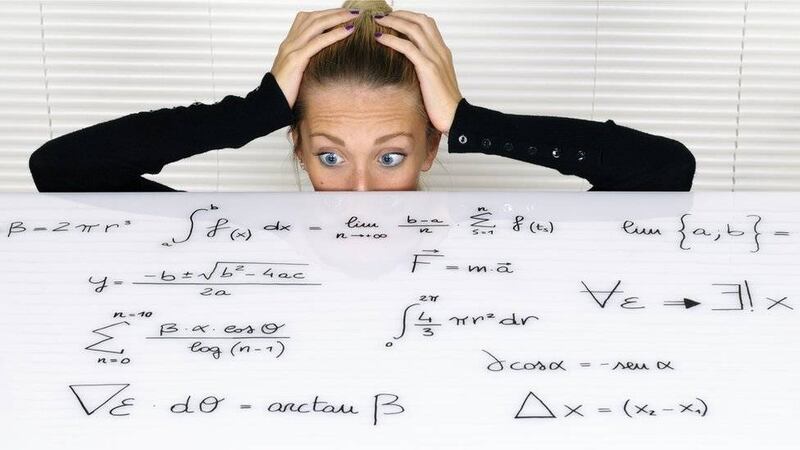 β = 2πr³   ₐ∫ᵇ f(x) dx = lim n→+∞ (b-a)/n · Σ s=1 n f(ts)   lim {a;b} =
y = (-b ± √(b² - 4ac))/2a   F⃗ = m·a⃗   ∀ε ⇒ ∃! x
Σ n=0 n=10 (β·α·cosθ)/(log(n-1))   ₀∫²π 4/3 πr² dr
∂cosα = -senα
∇ε · dθ = arctan β   Δx = (x₂ - x₁)